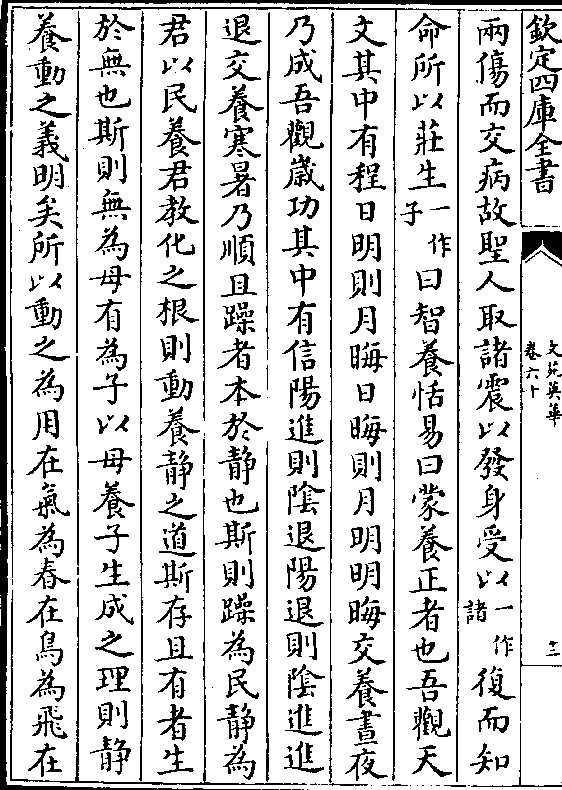 欽定四庫全書
文苑英華
卷六十
十三
兩傷而交病故聖人取諸震以發身受以一作諸復而知
命所以莊生一作子曰智養恬易曰蒙養正者也吾觀天
文其中有程日明則月晦日晦則月明明晦交養晝夜
乃成吾觀歲功其中有信陽進則陰退陽退則陰進進
退交養寒暑乃順且躁者本於靜也斯則躁為民靜為
君以民養君教化之根則動養靜之道斯存且有者生
於無也斯則無為母有為子以母養子生成之理則靜
養動之義明矣所以動之為用在氣為春在鳥為飛在